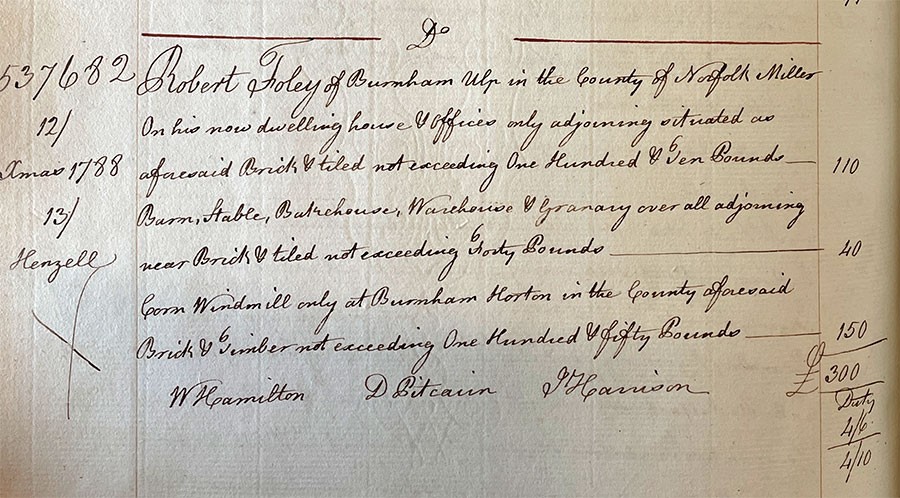 Do
537682 Robert Foley of Burnham Ulp in the County of Norfolk Miller
12/ On his now dwelling house & Offices only adjoining situated as
Xmas 1788 aforesaid Brick & tiled not exceeding One Hundred & Ten Pounds 110
13/ Barn, Stable, Bakehouse, Warehouse & Granary over all adjoining
Henzell near Brick & tiled not exceeding Forty Pounds 40
Corn Windmill only at Burnham Norton in the County aforesaid
Brick & Timber not exceeding One Hundred & fifty Pounds 150
£ 300
W Hamilton D Pitcairn J Harrison
Duty
4/6
4/10